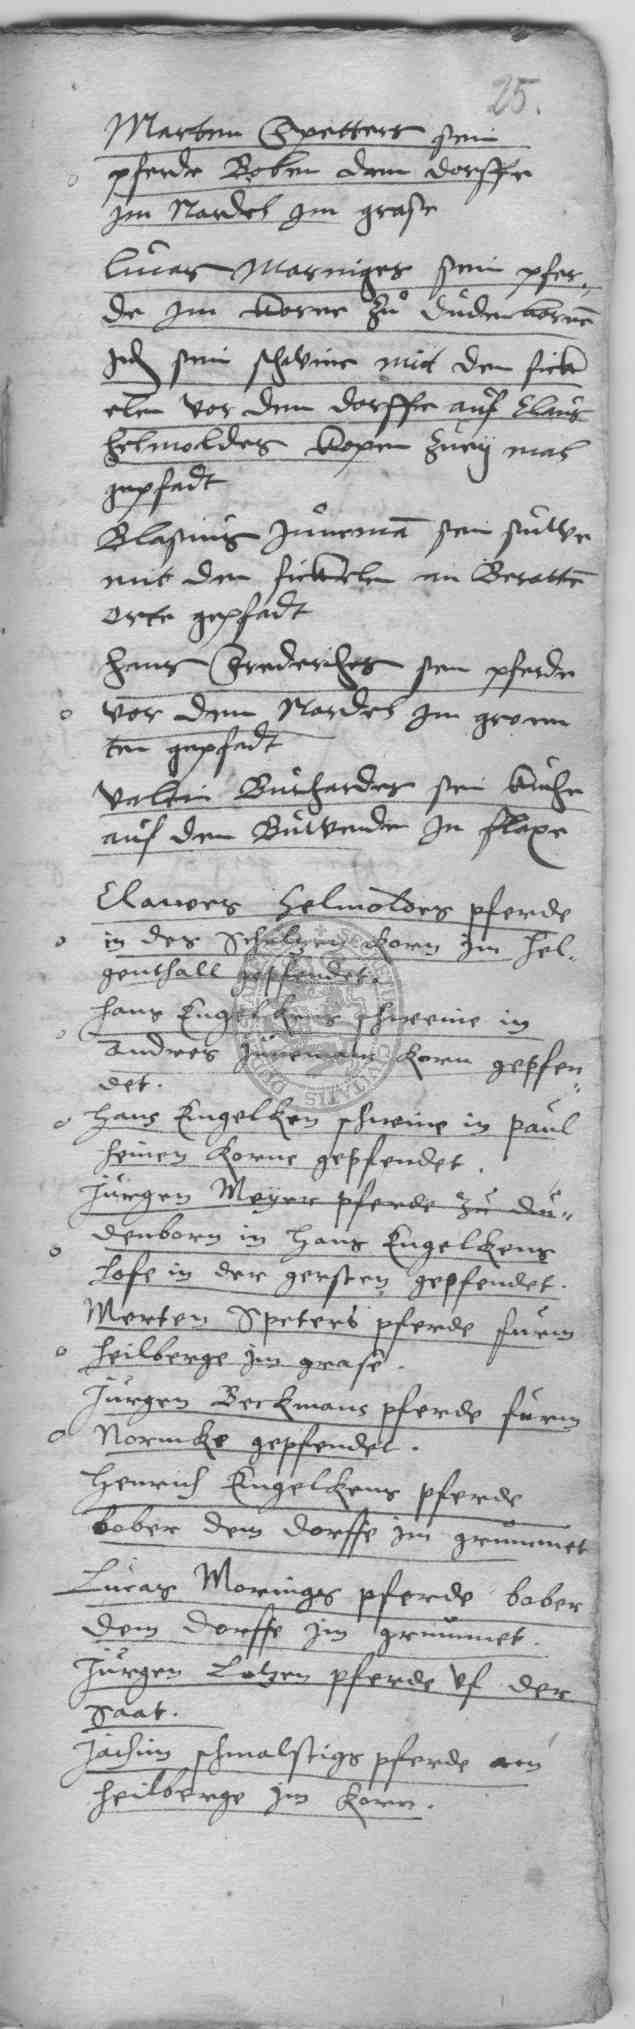 25.
Marten Spetters sein
pferde Boben dem dorffe
im Nardel im grase
Lucas Morniges sein pfer-
de im korne zu dudenborne
sein schwine mit den fick
elen vor dem dorffe auf Claus
Helmoldes kopen zweij mal
gepfadt
Blasius Junemā sein suwe
mit den fickelen an
orte gepfadt
Hans Frederiches sein pferde
vor dem Nardel im groem
ten gepfadt
Valtin Burharder sein kuhe
auf den Buwende in flaxe
Clawes Helmoldes pferde
in des Schultzen korn im hel-
genthall gepfendet.
Hans Engelkens schweine in
Andres Junemans korn gepfen-
det.
Hans Engelken schweine in Paul
heinen korne gepfendet.
Jurgen Meyer pferde zu du-
denborn in Hans Engelkens
hofe in der gersten gepfendet.
Merten Speters pferde furm
heilberge im grase.
Jurgen Beckmans pferde furm
Normcke gepfendet.
Henrich Engelkens pferde
bober dem dorffe im grummet
Lucas Moringes pferde bober
dem dorffe im grummet.
Jurgen Lotzen pferde uf der
saat.
Jachim schmalstigs pferde am
heilberge im korn.